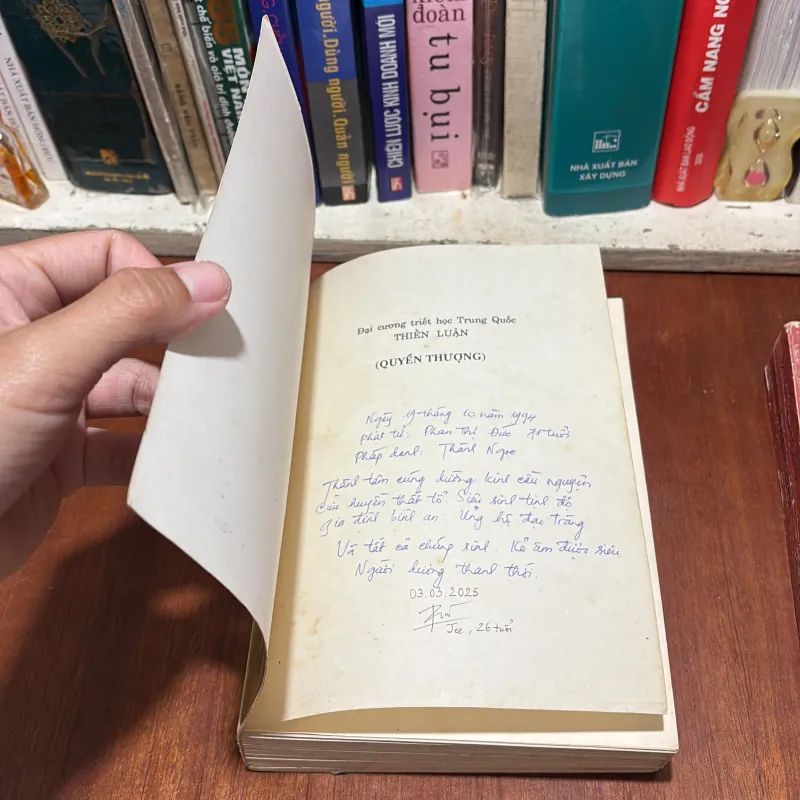 NHÀ XUẤT BẢN HỒNG ĐỨC
chế biến và giá trị dinh dưỡng
MÓN
VIỆT NAM
người. Dùng người. Quản người
CHIẾN LƯỢC KINH DOANH MỚI
đoàn
tu bụi
NHÀ XUẤT BẢN
XÂY DỰNG
CẨM NANG
NHÀ XUẤT BẢN LAO ĐỘNG
Đại cương triết học Trung Quốc
THIỀN LUẬN
(QUYỂN THƯỢNG)
Ngày 19 tháng 10 năm 1994
phật tử: Phan Thị Đức tuổi
Pháp danh: Thành Ngọc
Thành tâm cúng dường kinh cầu nguyện
cửu huyền thất tổ. Siêu sinh tịnh độ
gia đình bình an. Ủng hộ đạo tràng
Và tất cả chúng sinh. Kẻ âm được siêu
Người dương thanh thới.
03.03.2025
Jee, 26 tuổi